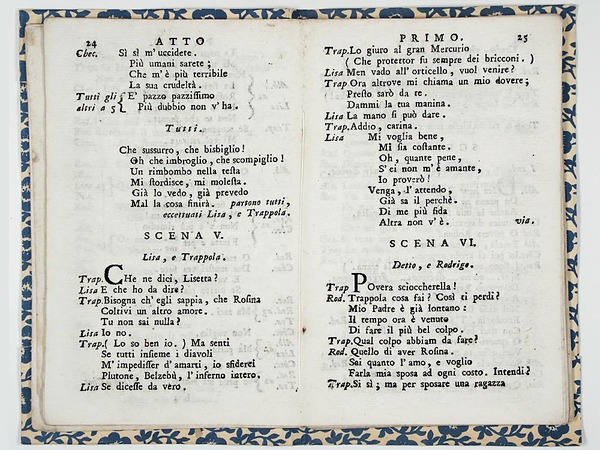 24 ATTO
Chec. Sì sì m' uccidete.
Più umani sarete;
Che m' è più terribile
La sua crudeltà.
Tutti gli E' pazzo pazzissimo
altri a 5 Più dubbio non v' ha.
Tutti.
Che sussurro, che bisbiglio!
Oh che imbroglio, che scompiglio!
Un rimbombo nella testa
Mi stordisce, mi molesta.
Già lo vedo, già prevedo
Mal la cosa finirà. partono tutti,
eccettuati Lisa, e Trappola.
SCENA V.
Lisa, e Trappola.
Trap. CHe ne dici, Lisetta?
Lisa E che ho da dire?
Trap. Bisogna ch' egli sappia, che Rosina
Coltivi un altro amore.
Tu non sai nulla?
Lisa Io no.
Trap. ( Lo so ben io. ) Ma senti
Se tutti insieme i diavoli
M' impedisser d' amarti, io sfiderei
Plutone, Belzebù, l' inferno intero.
Lisa Se dicesse da vero.
PRIMO. 25
Trap. Lo giuro al gran Mercurio
( Che protettor fu sempre dei bricconi. )
Lisa Men vado all' orticello, vuol venire?
Trap Ora altrove mi chiama un mio dovere;
Presto sarò da te.
Dammi la tua manina.
Lisa La mano si può dare.
Trap. Addio, carina.
Lisa Mi voglia bene,
Mi sia costante.
Oh, quante pene,
S' ei non m' è amante,
Io proverò!
Venga, l' attendo,
Già sa il perchè.
Di me più fida
Altra non v' è. via.
SCENA VI.
Detto, e Rodrigo.
Trap POvera scioccherella!
Rod. Trappola cosa fai? Così ti perdi?
Mio Padre è già lontano:
Il tempo ora è venuto
Di fare il più bel colpo.
Trap. Qual colpo abbiam da fare?
Rod. Quello di aver Rosina.
Sai quanto l' amo, e voglio
Farla mia sposa ad ogni costo. Intendi?
Trap. Sì sì; ma per sposare una ragazza